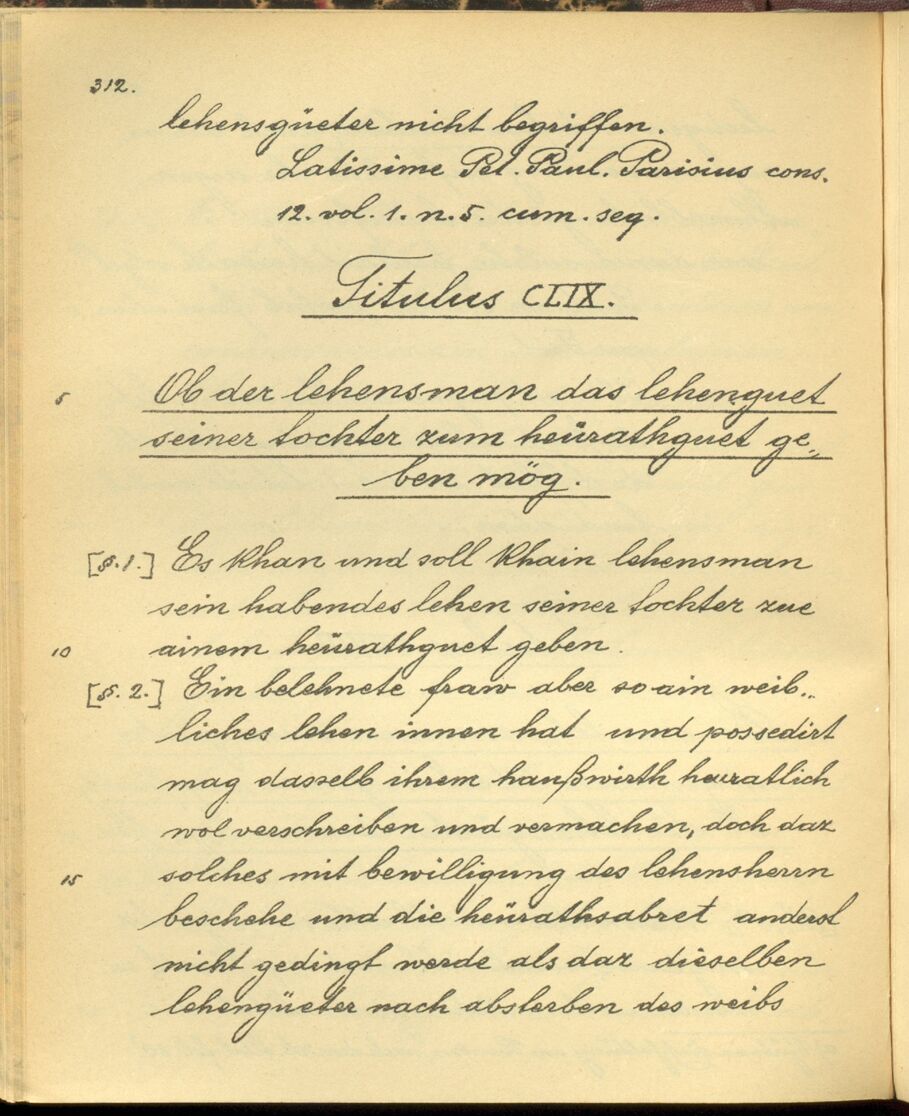 312.
lehensgüeter nicht begriffen.
Latissime Pet. Paul. Parisius cons.
12. vol. 1. n. 5. cum. seq.
Titulus CLIX.
5 Ob der lehensman das lehenguet
seiner tochter zum heürathguet ge„
ben mög.
[§. 1.] Es khan und soll khain lehensman
sein habendes lehen seiner tochter zue
10 ainem heürathguet geben.
[§. 2.] Ein belehnete fraw aber so ain weib„
liches lehen innen hat und possedirt
mag dasselb ihrem haußwirth heuratlich
wol verschreiben und vermachen, doch daz
15 solches mit bewilligung des lehensherrn
beschehe und die heürathsabret anderst
nicht gedingt werde als daz dieselben
lehengüeter nach absterben des weibs